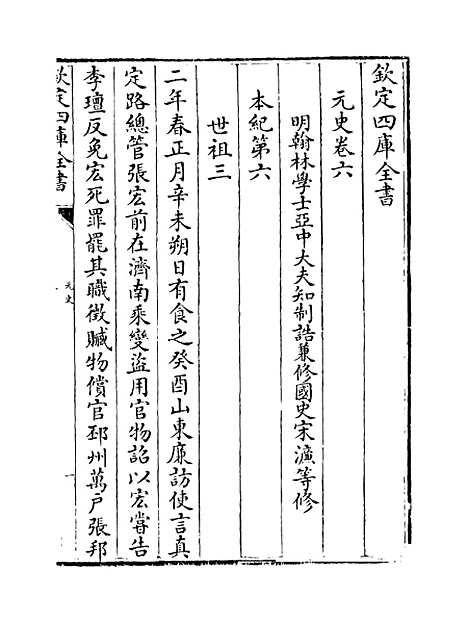 欽定四庫全書
元史卷六
明翰林學士亞中大夫知制誥兼修國史宋濂等修
本紀第六
世祖三
二年春正月辛未朔日有食之癸酉山東廉訪使言真
定路總管張宏前在濟南乘變盜用官物詔以宏嘗告
李璮反免宏死罪罷其職徵贓物償官邳州萬戶張邦
欽定四庫全書
元史
一